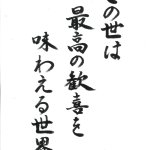 の世は
最高の歓喜を
味わえる世界